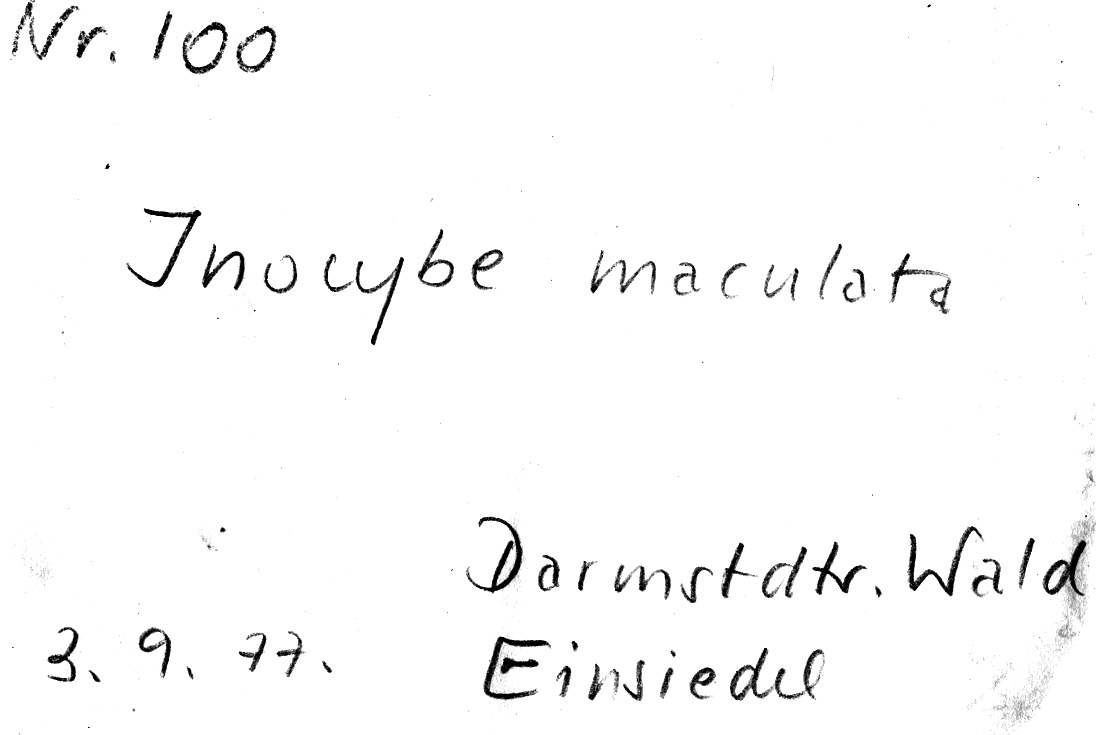 Nr. 100
Inocybe maculata
Darmstdtr. Wald
3. 9. 77. Einsiedel